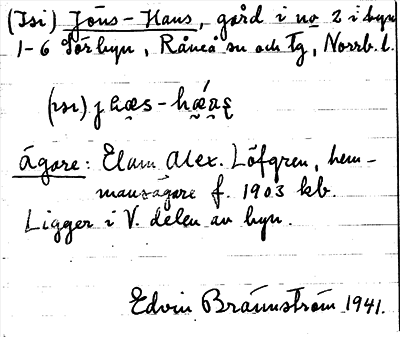 (Isi) Jöns-Hans, gård i no 2 i byn
1-6 Sörbyn, Råneå sn och Tg, Norrb. l.
(ɪsɪ)
Ägare: Elam Alex. Löfgren, hem-
mansägare f. 1903 kb.
Ligger i V. delen av byn.
Edvin Brännström 1941.